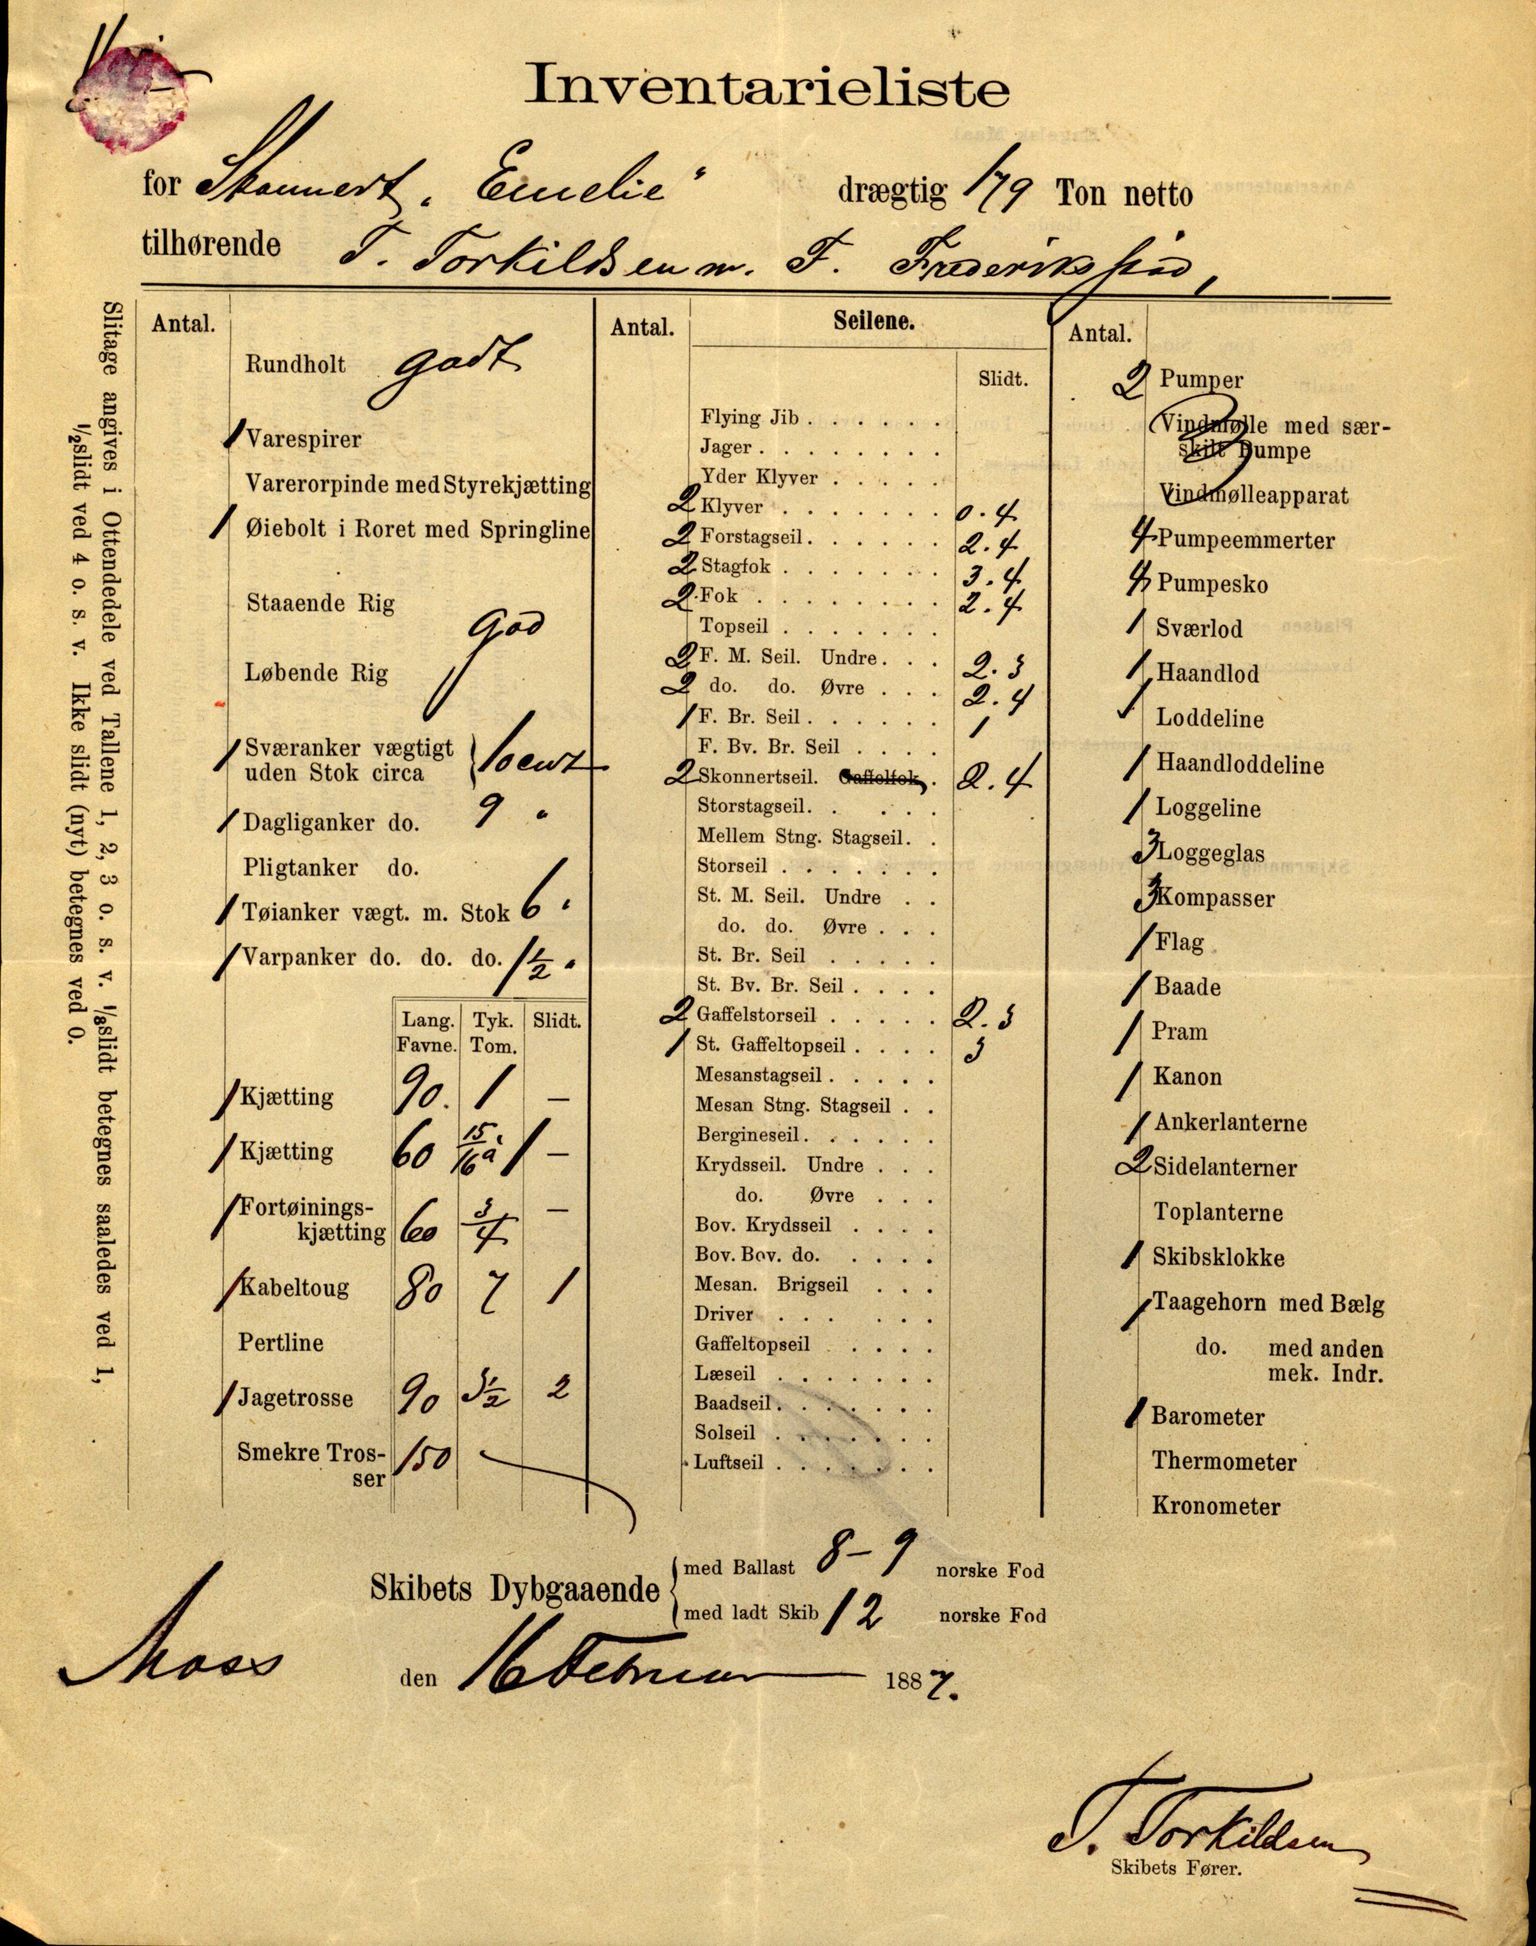 Inventarieliste
for Skonnert „Emelie" drægtig 179 Ton netto
tilhørende T. Torkildsen m. F. Frederiksstad,
Slitage angives i Ottendedele ved Tallene 1, 2, 3 o. s. v. 1/8slidt betegnes saaledes ved 1,
1/2slidt ved 4 o. s. v. Ikke slidt (nyt) betegnes ved 0.
Antal.
Rundholt godt
1 Varespirer
Varerorpinde med Styrekjætting
1 Øiebolt i Roret med Springline
Staaende Rig
god
Løbende Rig
1 Sværanker vægtigt
uden Stok circa } 10 cwt
1 Dagliganker do. 9 "
Pligtanker do.
1 Tøianker vægt. m. Stok 6 "
1 Varpanker do. do. do. 1 1/2 "
Lang. Tyk. Slidt.
Favne. Tom.
1 Kjætting 90. 1 —
1 Kjætting 60 15/16 a 1 —
1 Fortøinings-
kjætting 60 3/4 —
1 Kabeltoug 80 7 1
Pertline
1 Jagetrosse 90 3 1/2 2
Smekre Tros-
ser 150
Antal. Seilene.
Slidt.
Flying Jib . . . . . .
Jager . . . . . . . .
Yder Klyver . . . . .
2 Klyver . . . . . . . 0.4
2 Forstagseil. . . . . . 2.4
2 Stagfok . . . . . . . 3.4
2 Fok . . . . . . . . 2.4
Topseil . . . . . . .
2 F. M. Seil. Undre. . . 2.3
2 do. do. Øvre . . . 2.4
1 F. Br. Seil . . . . . . 1
F. Bv. Br. Seil . . . .
2 Skonnertseil. Gaffelfok . 2.4
Storstagseil. . . . .
Mellem Stng. Stagseil. .
Storseil . . . . . . .
St. M. Seil. Undre . .
do. do. Øvre . . .
St. Br. Seil . . . . .
St. Bv. Br. Seil . . . .
2 Gaffelstorseil . . . . . 2.3
1 St. Gaffeltopseil . . . . 3
Mesanstagseil . . . . .
Mesan Stng. Stagseil . .
Bergineseil. . . . . .
Krydsseil. Undre . . .
do. Øvre . . .
Bov. Krydsseil . . . .
Bov. Bov. do. . . . .
Mesan. Brigseil . . .
Driver . . . . . .
Gaffeltopseil . . . .
Læseil . . . . . . .
Baadseil. . . . . . .
Solseil . . . . . . .
Luftseil . . . . . . .
Antal.
2 Pumper
Vindmølle med sær-
skilt Pumpe
Vindmølleapparat
4 Pumpeemmerter
4 Pumpesko
1 Sværlod
1 Haandlod
✓ Loddeline
1 Haandloddeline
1 Loggeline
3 Loggeglas
3 Kompasser
1 Flag
1 Baade
1 Pram
1 Kanon
1 Ankerlanterne
2 Sidelanterner
Toplanterne
1 Skibsklokke
1 Taagehorn med Bælg
do. med anden
mek. Indr.
1 Barometer
Thermometer
Kronometer
Skibets Dybgaaende { med Ballast 8 – 9 norske Fod
med ladt Skib 12 norske Fod
Moss den 16 Februar 1887.
T. Torkildsen
Skibets Fører.